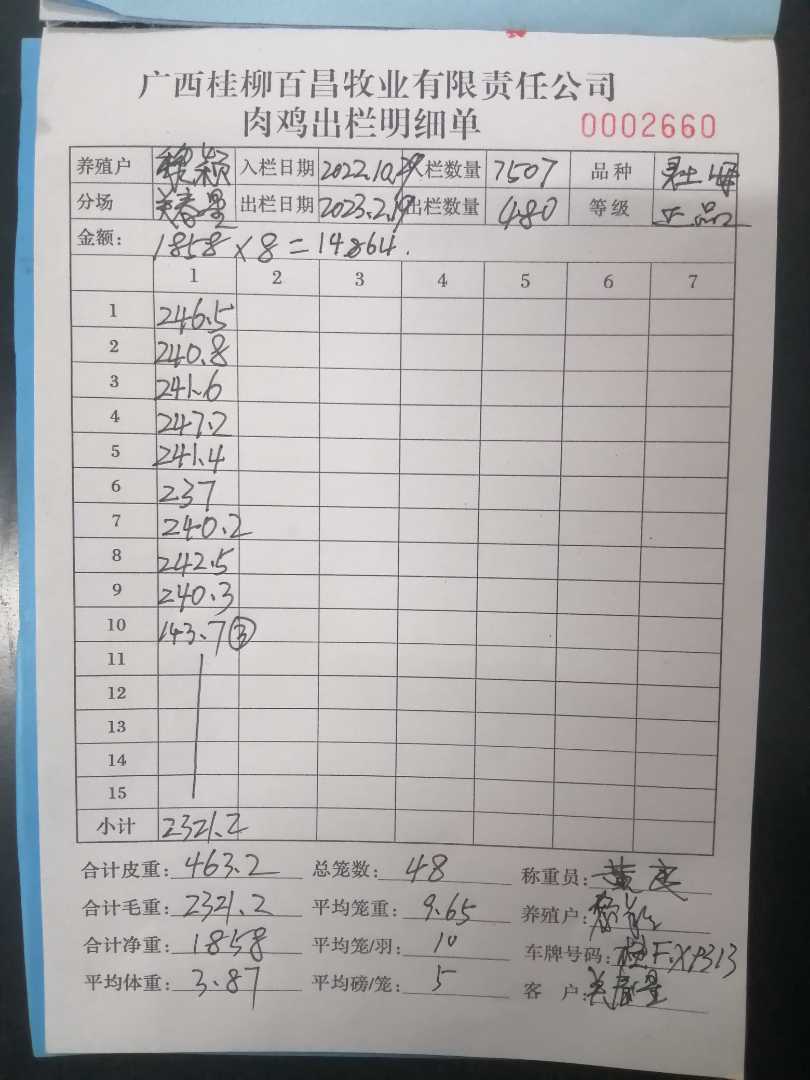 广西桂柳百昌牧业有限责任公司
肉鸡出栏明细单 0002660
养殖户 颖 入栏日期 2022.10.29 入栏数量 7507 品种 土
分场 量 出栏日期 2023.2.19 出栏数量 480 等级 正品
金额: 1858×8=14864.
1 2 3 4 5 6 7
1 246.5
2 240.8
3 241.6
4 247.2
5 241.4
6 237
7 240.2
8 242.5
9 240.3
10 143.7 ③
11
12
13
14
15
小计 2321.2
合计皮重: 463.2 总笼数: 48 称重员: 黄
合计毛重: 2321.2 平均笼重: 9.65 养殖户:
合计净重: 1858 平均笼/羽: 10 车牌号码: 桂F.X9313
平均体重: 3.87 平均磅/笼: 5 客 户: 量